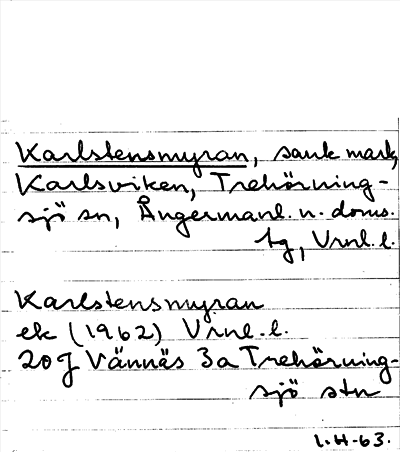 Karlstensmyran, sank mark,
Karlsviken, Trehörning-
sjö sn, Ångermanl. n. doms.
tg, Vrnl. l.
Karlstensmyran
ek (1962) Vrnl. l.
20 J Vännäs 3a Trehörning-
sjö stn
L.H-63.